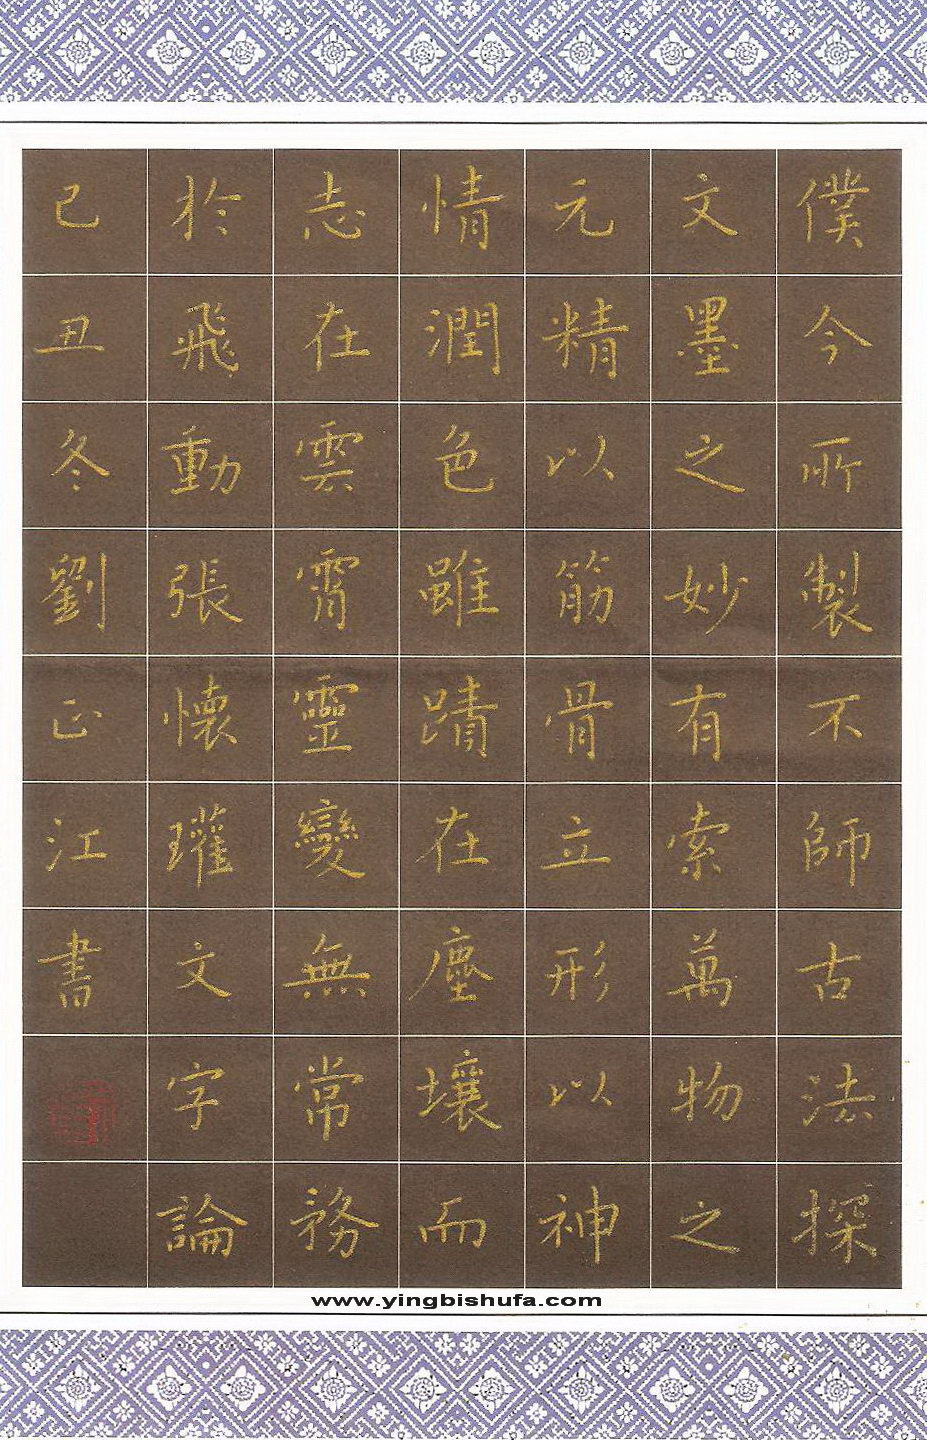 僕今所製不師古法探
文墨之妙有索萬物之
元精以筋骨立形以神
情潤色雖蹟在塵壤而
志在雲霄靈變無常務
於飛動張懷瓘文字論
己丑冬劉正江書
www.yingbishufa.com